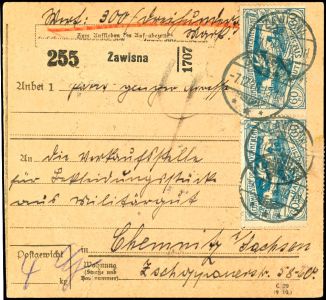 Wert: 300 (dreihundert
Mark)
Zum Aufkleben des Aufgabezettels
255
Zawisna
1707
Anbei 1
An die Verkaufsstelle
für Bekleidungsstücke
aus Militärgut
Postgewicht
Chemnitz i/Sachsen
Wohnung
(Straße und
Hausnummer)
Zschopauerstr. 58-60
kg
C 29